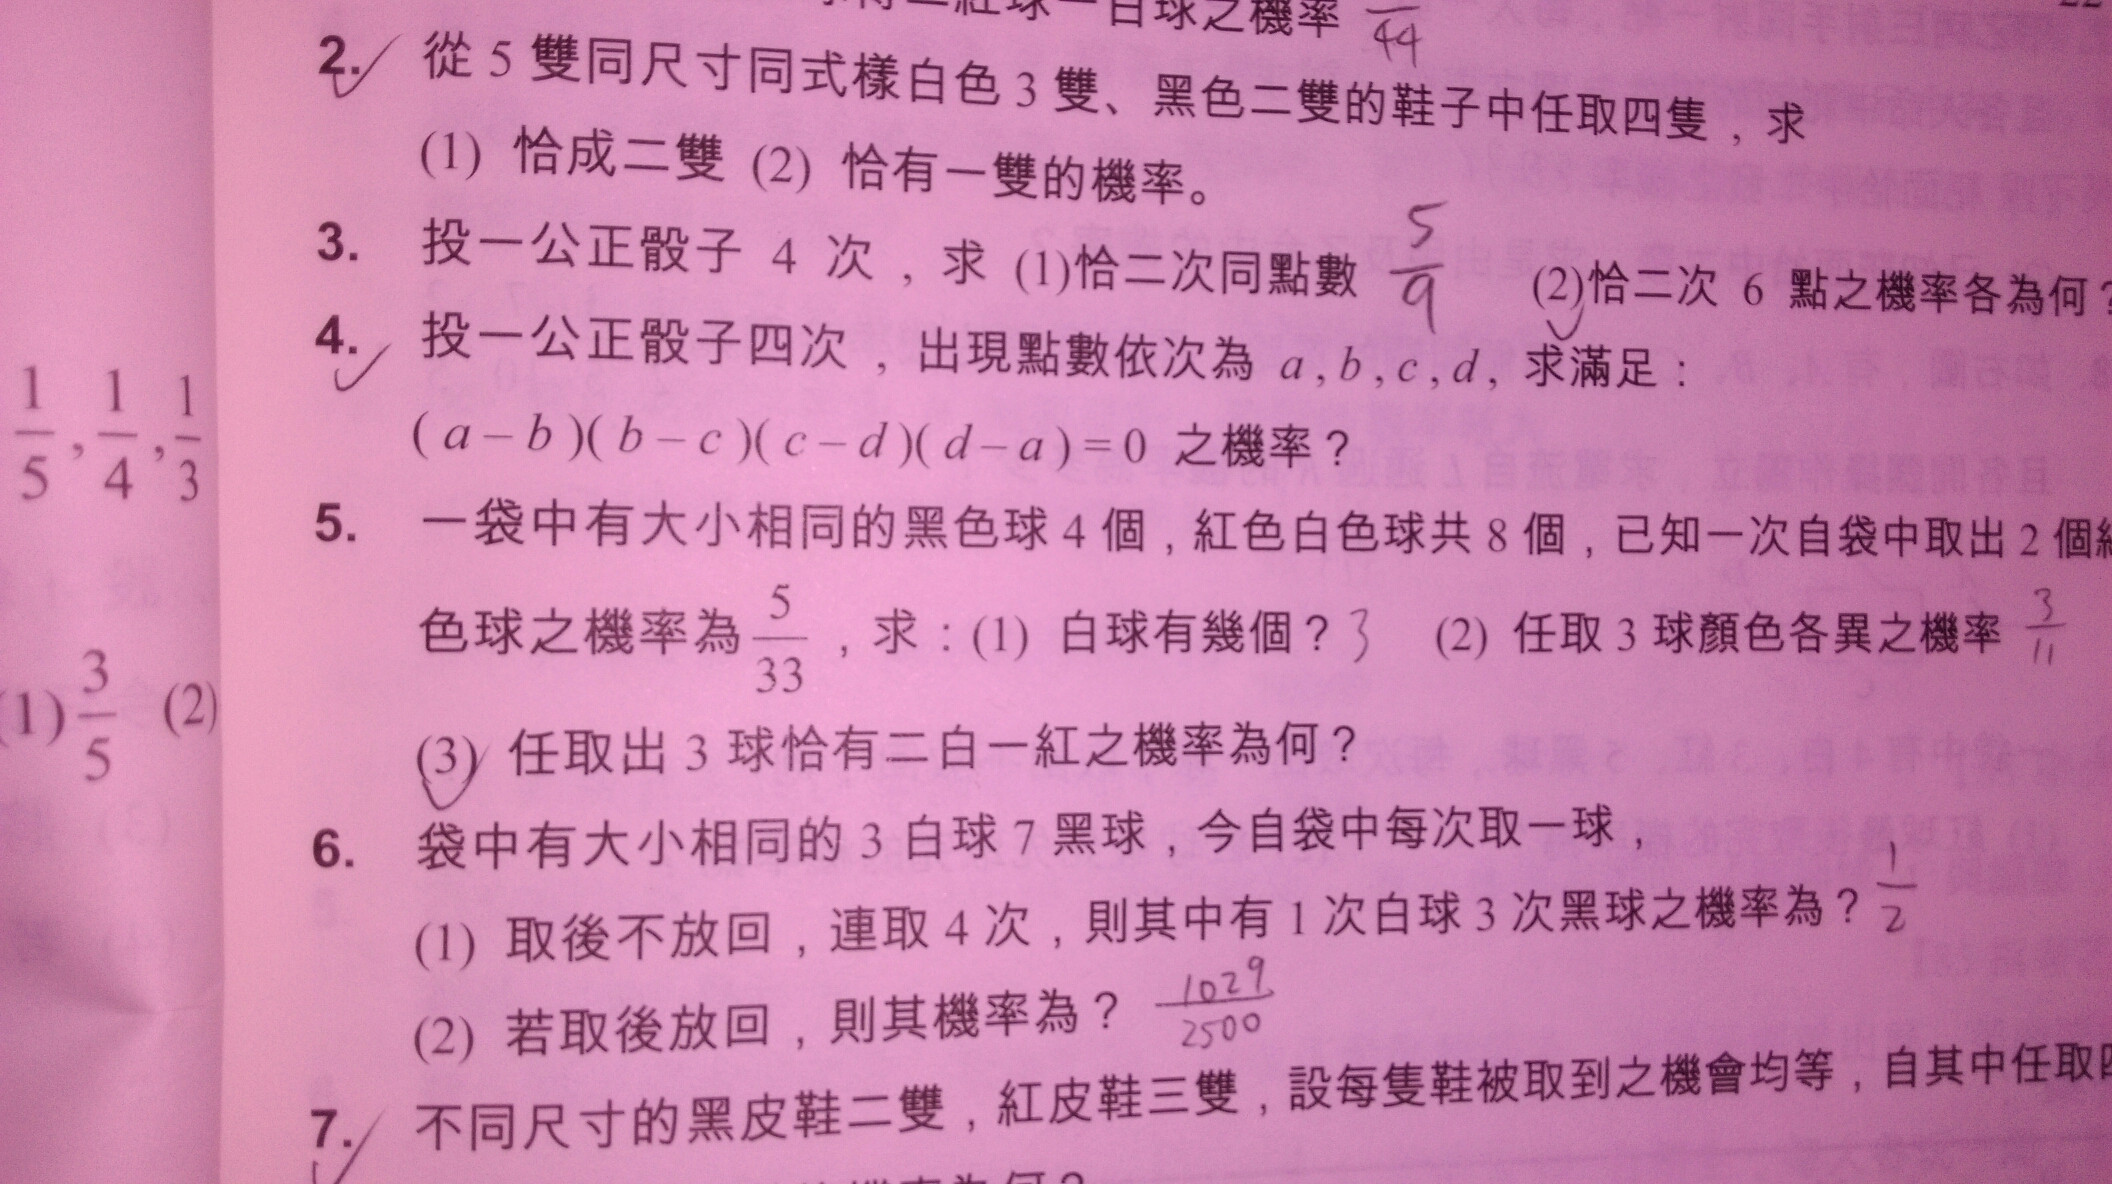 紅球一白球之機率 44
2. 從 5 雙同尺寸同式樣白色 3 雙、黑色二雙的鞋子中任取四隻，求
(1) 恰成二雙 (2) 恰有一雙的機率。
3. 投一公正骰子 4 次，求 (1)恰二次同點數 5/9 (2)恰二次 6 點之機率各為何？
4. 投一公正骰子四次，出現點數依次為 a , b , c , d , 求滿足：
( a – b )( b – c )( c – d )( d – a ) = 0 之機率？
1/5 , 1/4 , 1/3
5. 一袋中有大小相同的黑色球 4 個，紅色白色球共 8 個，已知一次自袋中取出 2 個
色球之機率為 5/33 ，求：(1) 白球有幾個？ 3 (2) 任取 3 球顏色各異之機率 3/11
(1) 3/5 (2)
(3) 任取出 3 球恰有二白一紅之機率為何？
6. 袋中有大小相同的 3 白球 7 黑球，今自袋中每次取一球，
(1) 取後不放回，連取 4 次，則其中有 1 次白球 3 次黑球之機率為？ 1/2
(2) 若取後放回，則其機率為？ 1029/2500
7. 不同尺寸的黑皮鞋二雙，紅皮鞋三雙，設每隻鞋被取到之機會均等，自其中任取四